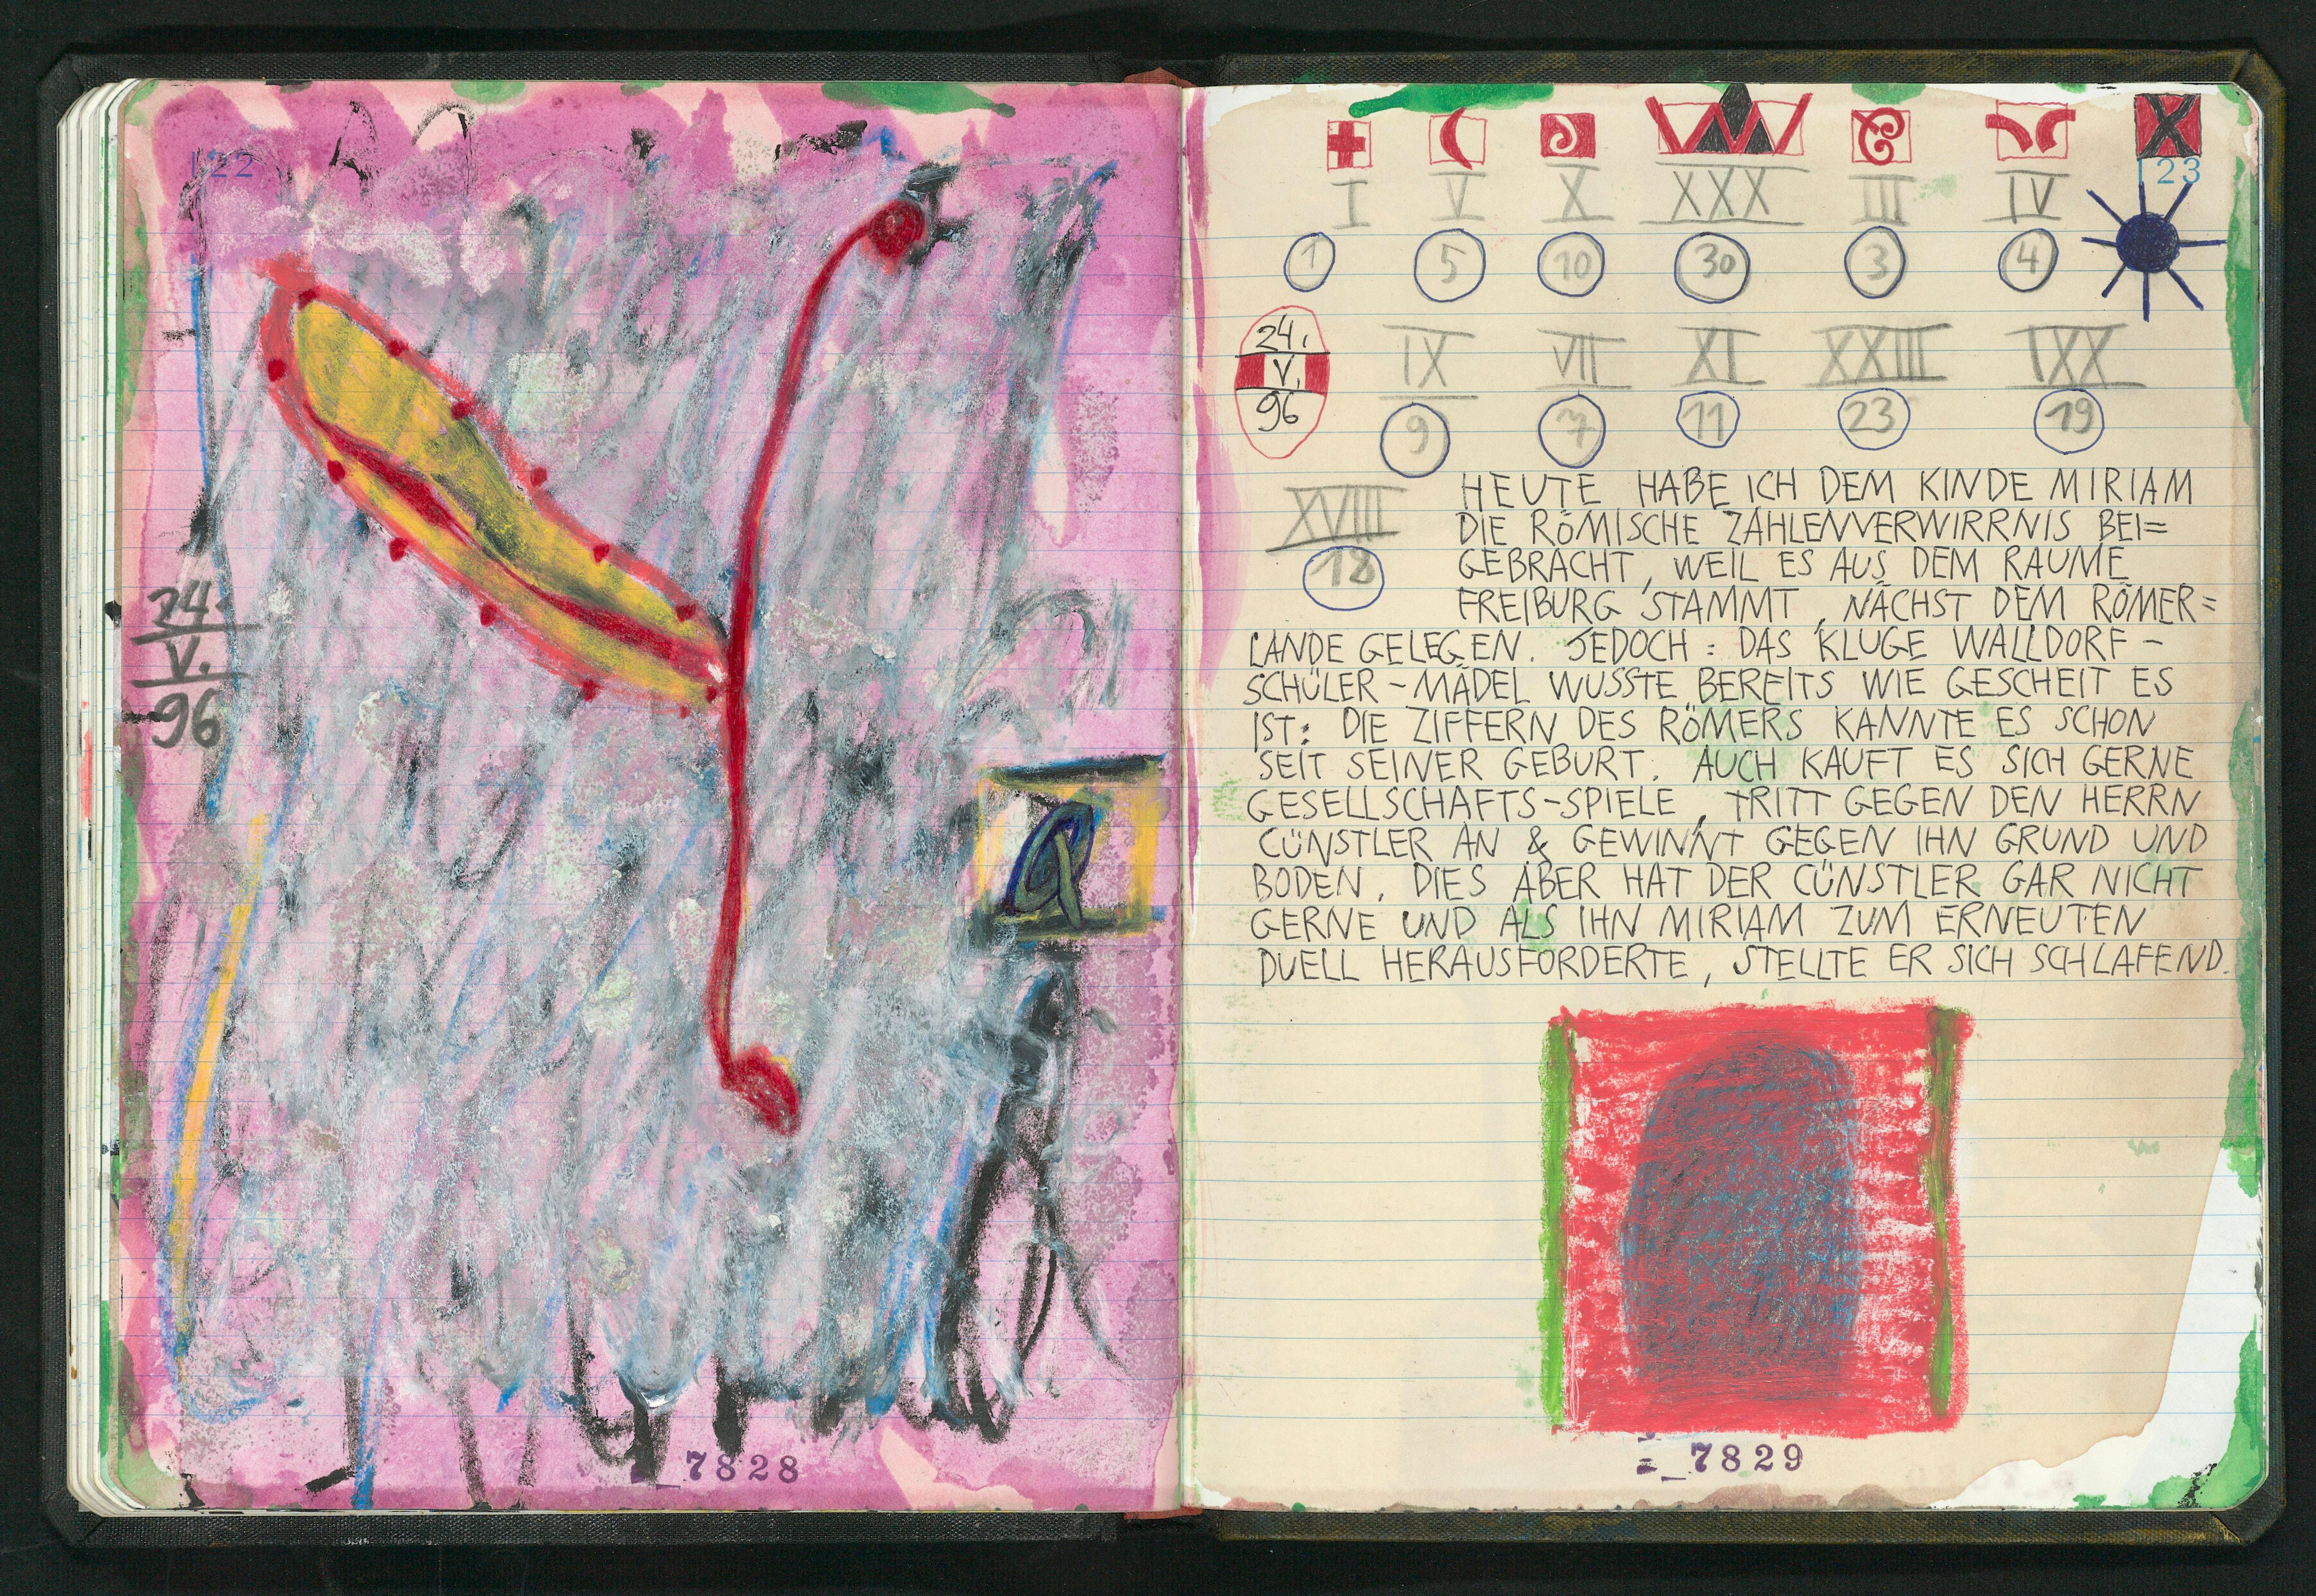 122
24.
V.
96
a
7828
123
I V X XXX III IV
1 5 10 30 3 4
24.
V.
96
IX VII XI XXIII IXX
9 7 11 23 19
XVIII
18
HEUTE HABE ICH DEM KINDE MIRIAM
DIE RÖMISCHE ZAHLENVERWIRRNIS BEI=
GEBRACHT, WEIL ES AUS DEM RAUME
FREIBURG STAMMT, NÄCHST DEM RÖMER=
LANDE GELEGEN. JEDOCH: DAS KLUGE WALLDORF-
SCHÜLER-MÄDEL WUSSTE BEREITS WIE GESCHEIT ES
IST: DIE ZIFFERN DES RÖMERS KANNTE ES SCHON
SEIT SEINER GEBURT. AUCH KAUFT ES SICH GERNE
GESELLSCHAFTS-SPIELE, TRITT GEGEN DEN HERRN
CÜNSTLER AN & GEWINNT GEGEN IHN GRUND UND
BODEN. DIES ABER HAT DER CÜNSTLER GAR NICHT
GERNE UND ALS IHN MIRIAM ZUM ERNEUTEN
DUELL HERAUSFORDERTE, STELLTE ER SICH SCHLAFEND.
7829